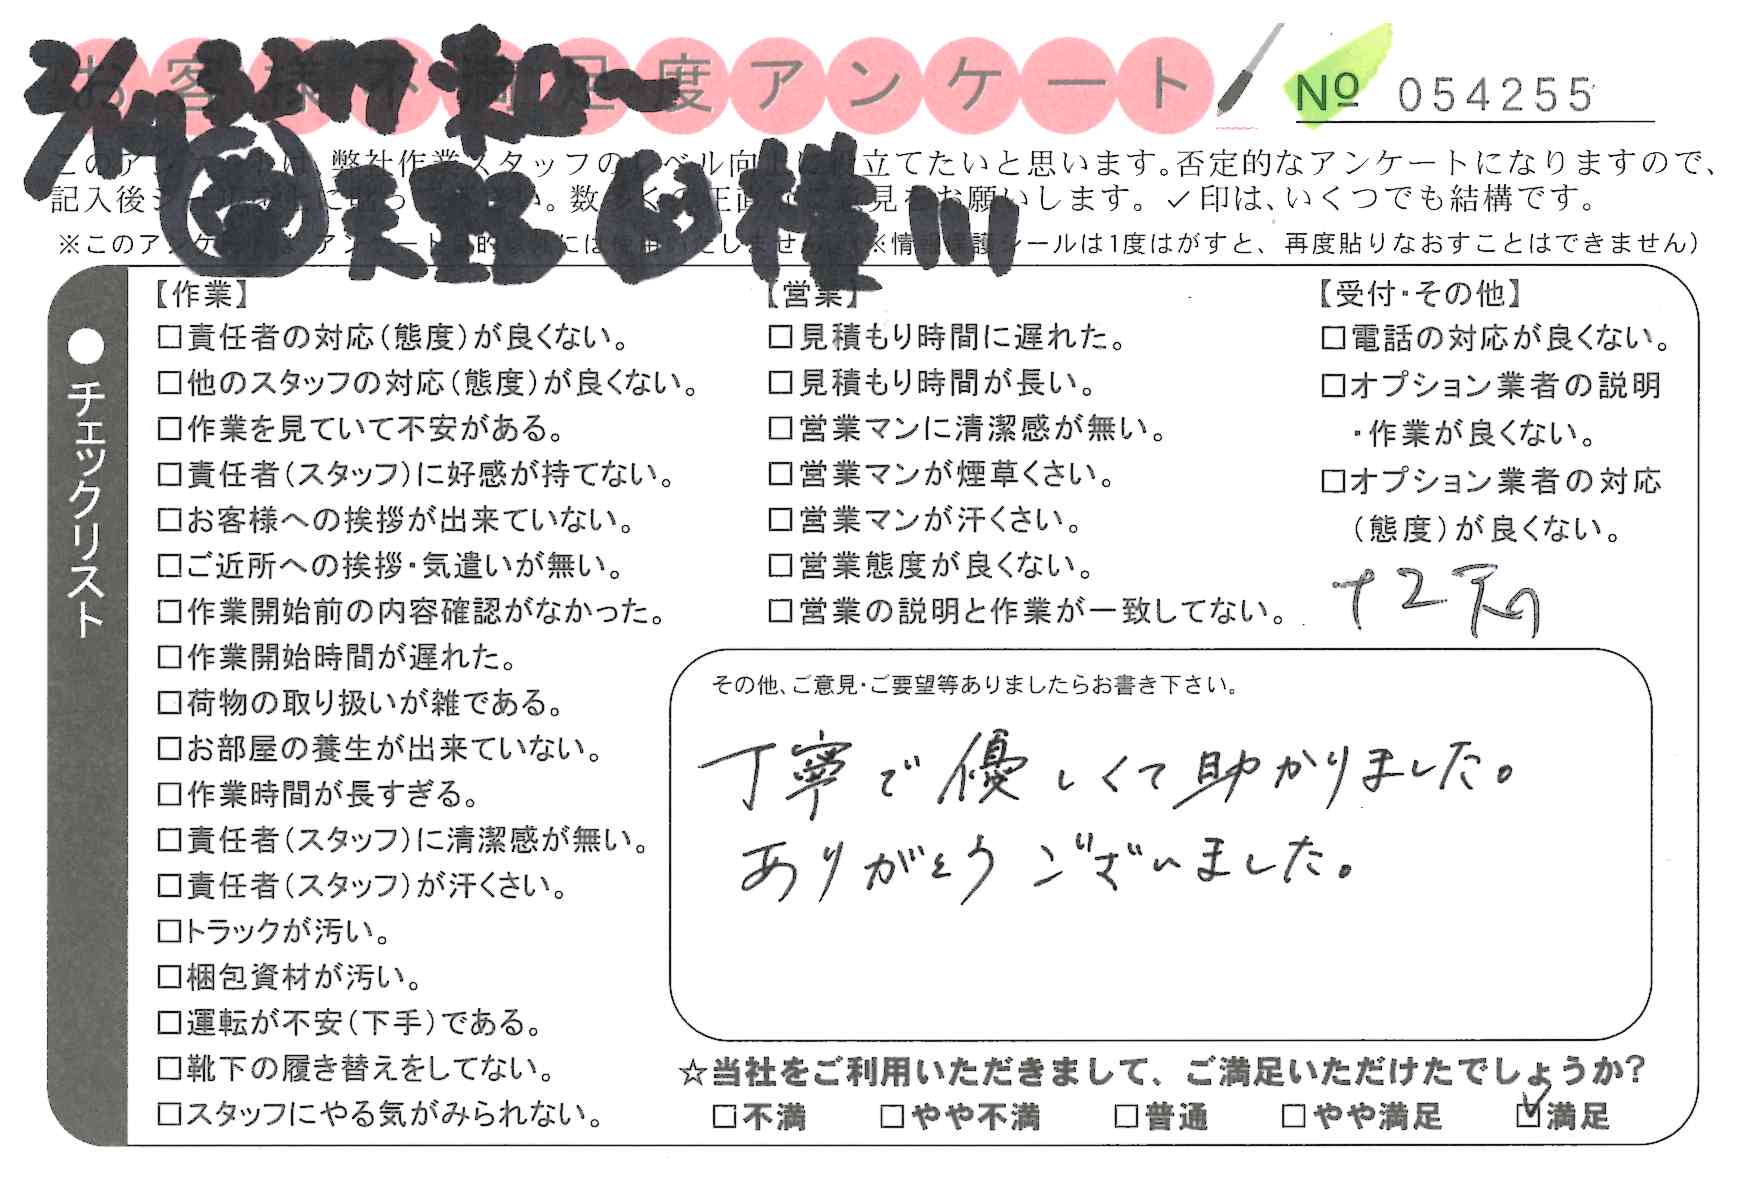 お客様不満足度アンケート
№ 054255
2/14
天野
横川
このアンケートは、弊社作業スタッフのレベル向上に役立てたいと思います。否定的なアンケートになりますので、
記入後シールを 数多くの正直 見をお願いします。✓印は、いくつでも結構です。
※このアンケ アンケート目的 には使用いたしません ※情報保護シールは1度はがすと、再度貼りなおすことはできません）
●チェックリスト
【作業】
□責任者の対応（態度）が良くない。
□他のスタッフの対応（態度）が良くない。
□作業を見ていて不安がある。
□責任者（スタッフ）に好感が持てない。
□お客様への挨拶が出来ていない。
□ご近所への挨拶・気遣いが無い。
□作業開始前の内容確認がなかった。
□作業開始時間が遅れた。
□荷物の取り扱いが雑である。
□お部屋の養生が出来ていない。
□作業時間が長すぎる。
□責任者（スタッフ）に清潔感が無い。
□責任者（スタッフ）が汗くさい。
□トラックが汚い。
□梱包資材が汚い。
□運転が不安（下手）である。
□靴下の履き替えをしてない。
□スタッフにやる気がみられない。
【営業】
□見積もり時間に遅れた。
□見積もり時間が長い。
□営業マンに清潔感が無い。
□営業マンが煙草くさい。
□営業マンが汗くさい。
□営業態度が良くない。
□営業の説明と作業が一致してない。
【受付・その他】
□電話の対応が良くない。
□オプション業者の説明
・作業が良くない。
□オプション業者の対応
（態度）が良くない。
その他、ご意見・ご要望等ありましたらお書き下さい。
丁寧で優しくて助かりました。
ありがとうございました。
☆当社をご利用いただきまして、ご満足いただけたでしょうか?
□不満 □やや不満 □普通 □やや満足 ☑満足